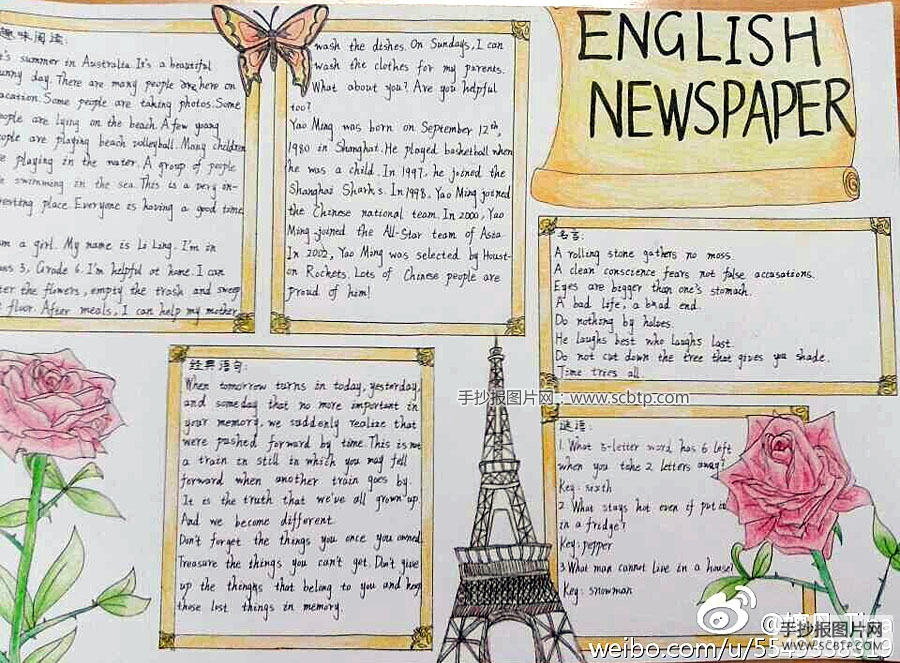 趣味阅读:
It's summer in Australia. It's a beautiful
sunny day. There are many people are here on
vacation. Some people are taking photos. Some
people are lying on the beach. A few young
people are playing beach volleyball. Many children
are playing in the water. A group of people
swimming in the sea. This is a very in-
teresting place. Everyone is having a good time.
am a girl. My name is Li Ling. I'm in
Class 3, Grade 6. I'm helpful at home. I can
water the flowers, empty the trash and sweep
floor. After meals, I can help my mother
wash the dishes. On Sundays, I can
wash the clothes for my parents.
What about you? Are you helpful
too?
Yao Ming was born on September 12th,
1980 in Shanghai. He played basketball when
he was a child. In 1997, he joined the
Shanghai Sharks. In 1998, Yao Ming joined
the Chinese national team. In 2000, Yao
Ming joined the All-Star team of Asia.
In 2002, Yao Ming was selected by Houst-
on Rockets. Lots of Chinese people are
proud of him!
ENGLISH
NEWSPAPER
名言:
A rolling stone gathers no moss.
A clean conscience fears not false accusations.
Eyes are bigger than one's stomach.
A bad life, a bad end.
Do nothing by halves.
He laughs best who laughs last.
Do not cut down the tree that gives you shade.
Time tries all.
经典语句:
When tomorrow turns in today, yesterday,
and someday that no more important in
your memory, we suddenly realize that
were pushed forward by time. This is not
a train in still in which you may fell
forward when another train goes by.
It is the truth that we've all grown up.
And we become different.
Don't forget the things you once you owned.
Treasure the things you can't get. Don't give
up the thingns that belong to you and keep
those lost things in memory.
手抄报图片网：www.scbtp.com
谜语:
1. What 5-letter word has 6 left
when you take 2 letters away?
Key: sixth
2. What stays hot even if put it
in a fridge?
Key: pepper
3. What man cannot live in a house?
Key: snowman
手抄报图片网
www.scbtp.com